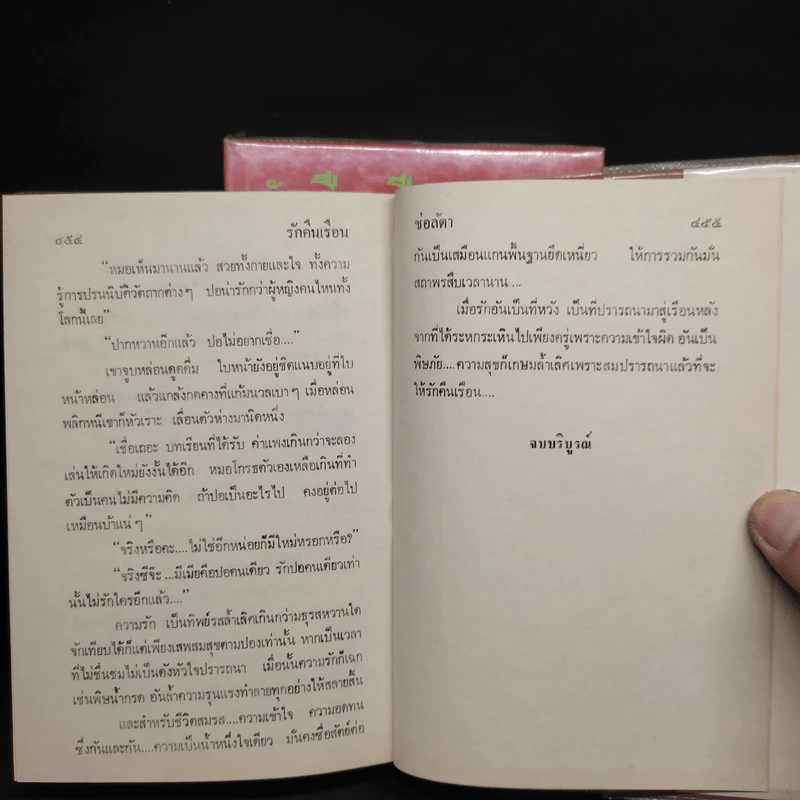 ๙๕๔ รักคืนเรือน
“หมอเห็นมานานแล้ว สวยทั้งกายและใจ ทั้งความ
รู้การปรนนิบัติวัตถากต่างๆ ปอน่ารักกว่าผู้หญิงคนไหนทั้ง
โลกนี้เลย”
“ปากหวานอีกแล้ว ปอไม่อยากเชื่อ....”
เขาจูบหล่อนดูดดื่ม ใบหน้ายังอยู่ชิดแนบอยู่ที่ใบ
หน้าหล่อน แล้วแกล้งกดคางที่แก้มนวลเบาๆ เมื่อหล่อน
พลิกหนีเขาก็หัวเราะ เลื่อนตัวห่างมานิดหนึ่ง
“เชื่อเถอะ บทเรียนที่ได้รับ ค่าแพงเกินกว่าจะลอง
เล่นให้เกิดใหม่ยังงั้นได้อีก หมอโกรธตัวเองเหลือเกินที่ทำ
ตัวเป็นคนไม่มีความคิด ถ้าปอเป็นอะไรไป คงอยู่ต่อไป
เหมือนบ้าแน่ๆ”
“จริงหรือคะ....ไม่ใช่อีกหน่อยก็มีใหม่หรอกหรือ?”
“จริงซีจ๊ะ ...มีเมียคือปอคนเดียว รักปอคนเดียวเท่า
นั้นไม่รักใครอีกแล้ว....”
ความรัก เป็นทิพย์รสล้ำเลิศเกินกว่ามธุรสหวานใด
จักเทียบได้ก็แต่เพียงเสพสมสุขตามปองเท่านั้น หากเป็นเวลา
ที่ไม่ชื่นชมไม่เป็นดังหัวใจปรารถนา เมื่อนั้นความรักก็เฉก
เช่นพิษน้ำกรด อันล้ำความรุนแรงทำลายทุกอย่างให้สลายสิ้น
และสำหรับชีวิตสมรส....ความเข้าใจ ความอดทน
ซึ่งกันและกัน....ความเป็นน้ำหนึ่งใจเดียว มั่นคงซื่อสัตย์ต่อ
ช่อลัดา ๔๕๕
กันเป็นเสมือนแกนพื้นฐานยึดเหนี่ยว ให้การรวมกันมั่น
สถาพรสืบเวลานาน....
เมื่อรักอันเป็นที่หวัง เป็นที่ปรารถนามาสู่เรือนหลัง
จากที่ได้ระหกระเหินไปเพียงครู่เพราะความเข้าใจผิด อันเป็น
พิษภัย....ความสุขก็เกษมล้ำเลิศเพราะสมปรารถนาแล้วที่จะ
ให้รักคืนเรือน....
จบบริบูรณ์